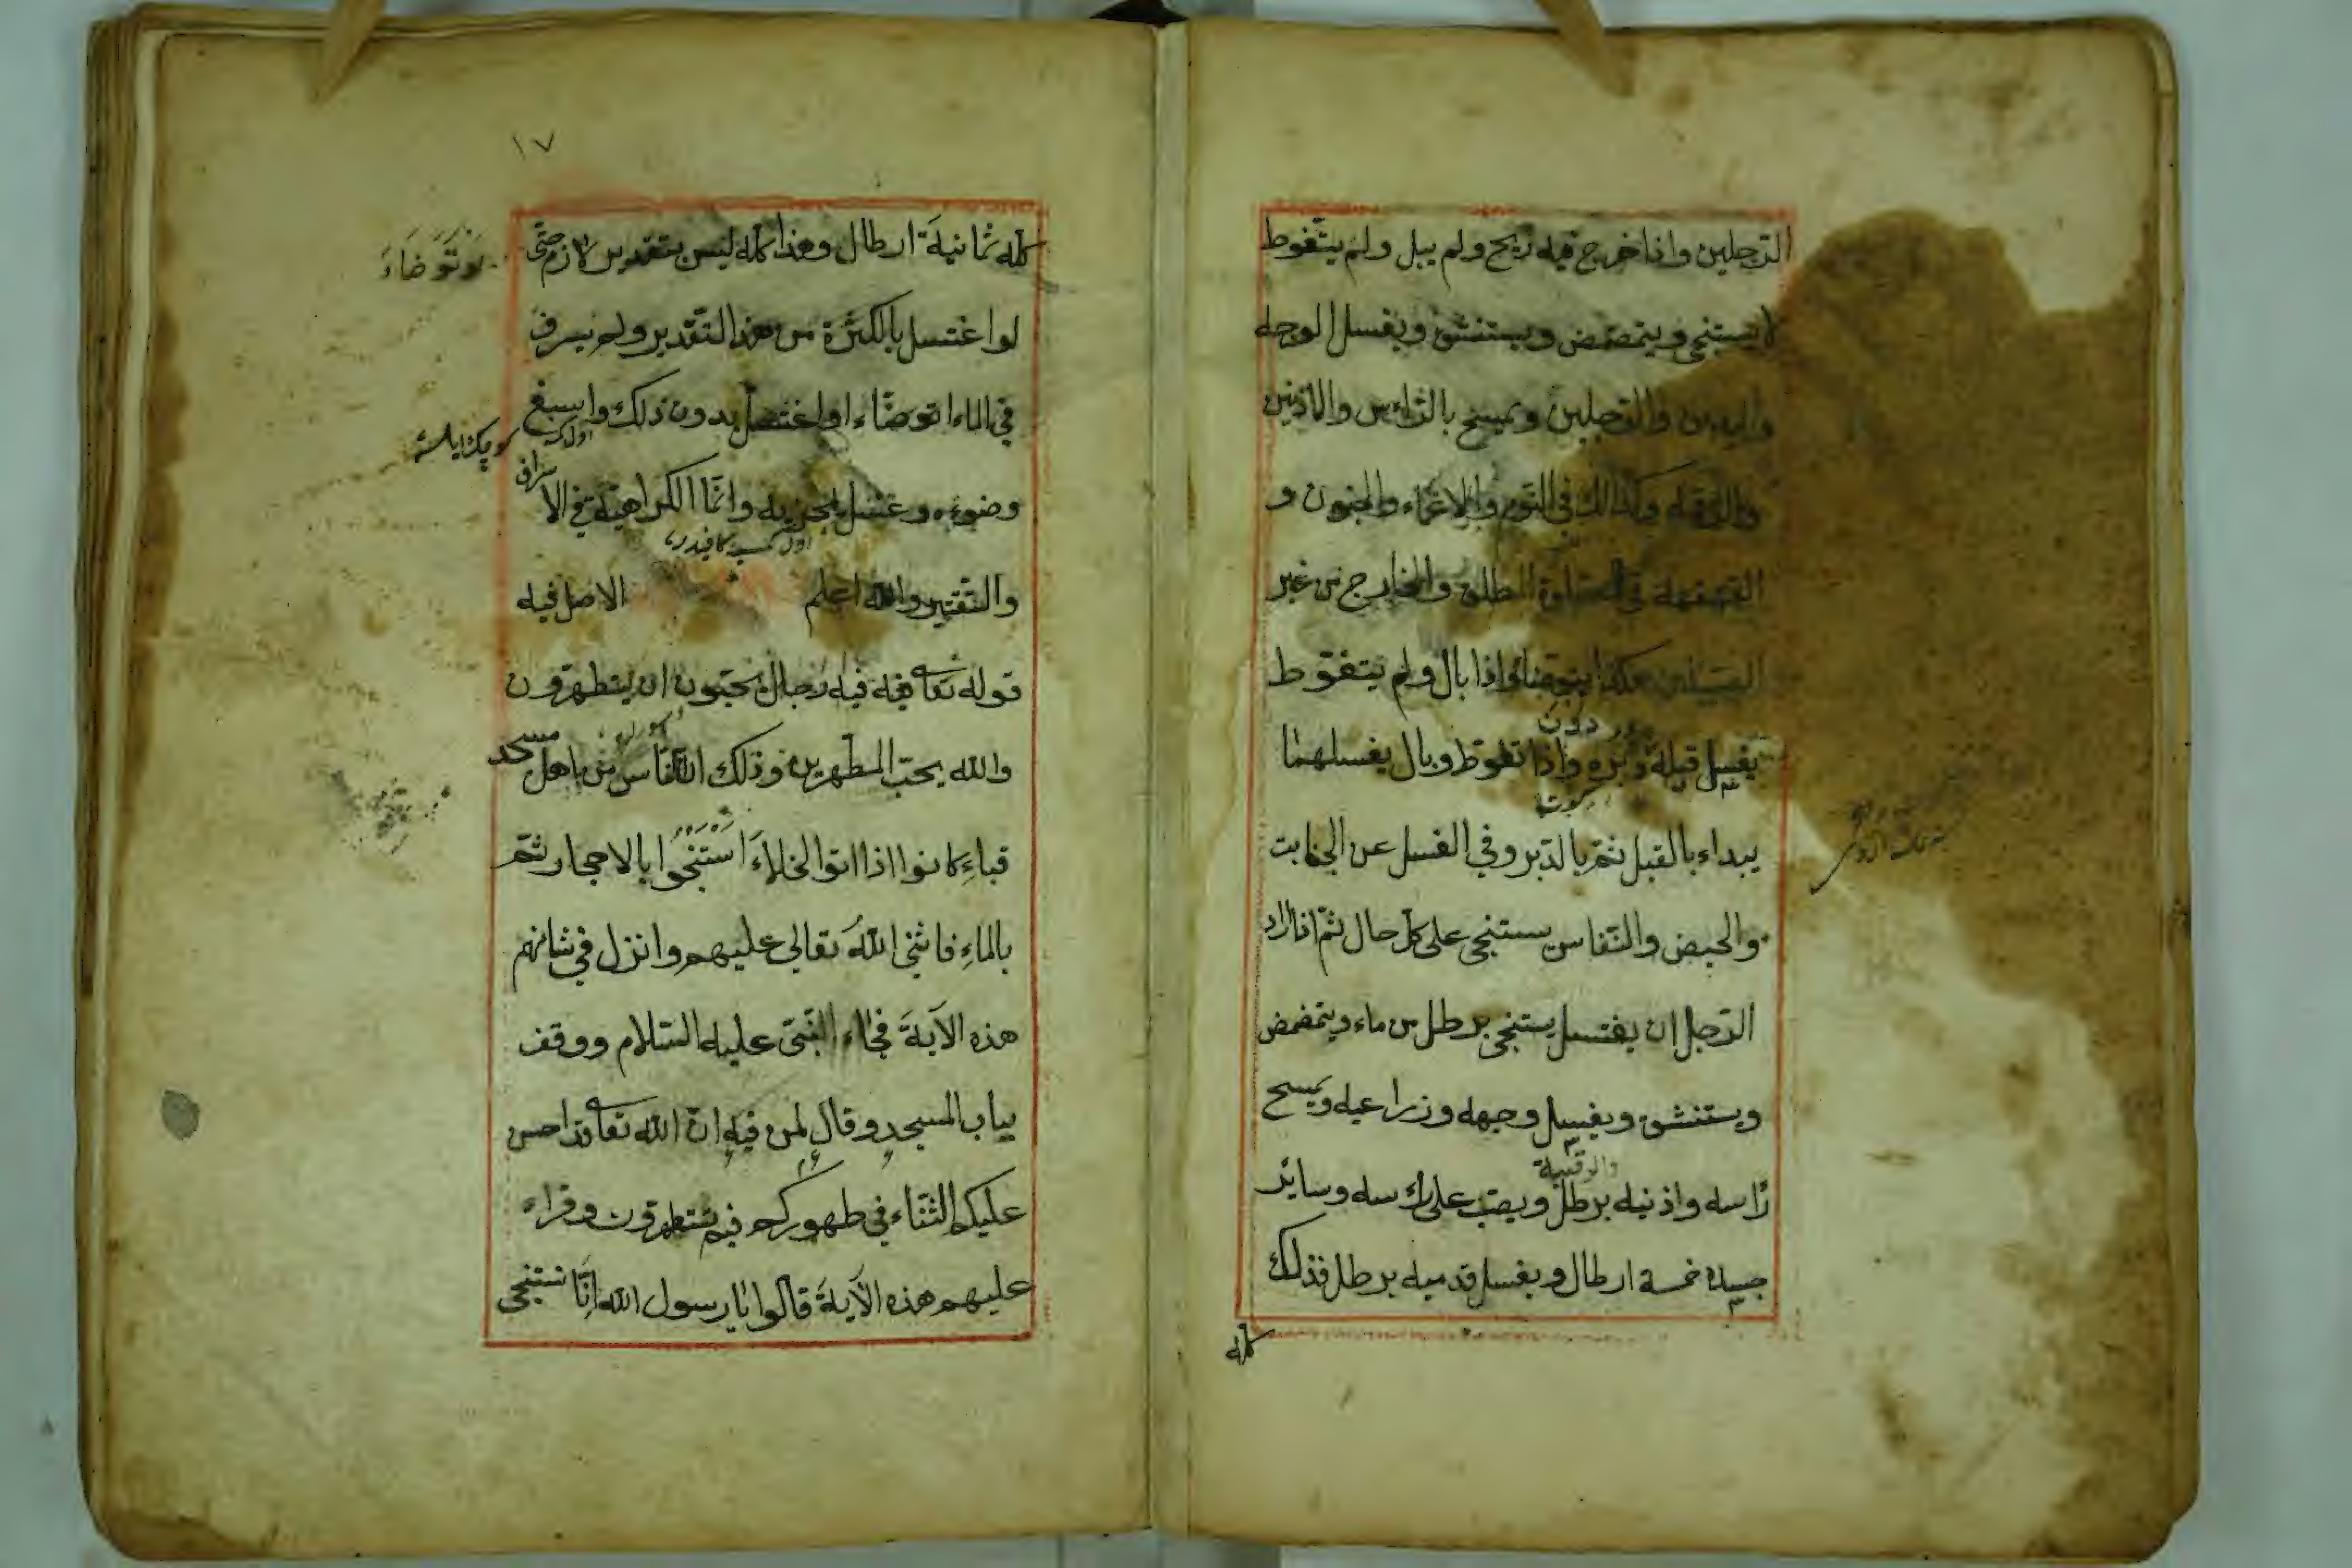 الرجلين واذا خرج فيه ريح ولم يبل ولم يتغوط
لا يستنجى ويتمضمض ويستنشق ويغسل الوجه
واليدين والرجلين ويمسح بالرّاءس والاذنين
والرقبه وكذالك في النوم والاغماء والجنون و
القهقهه في الصلوة المطلق والخارج من غير
السبيلين هكذا يتوضاء واذا بال ولم يتغوّط
يغسل قبله دبره واذا تغوط وبال يغسلهما
يبداء بالقبل ثمّ بالدّبر وفي الغسل عن الجنابت
والحيض والنّفاس يستنجى على كلّ حال ثمّ اذا اراد
الرّجل ان يغتسل يستنجى برطل من ماء ويتمضمض
ويستنشق ويغسل وجهه وزراعيه ويمسح
والرقبة
رٔاسه واذنيه برطل ويصبّ على راسه وسائر
جسده خمسة ارطال ويغسل قدميه برطل فذلك
كلّه
١٧
كلّه ثمانية ارطال وهذا كلّه ليس بتقدير لازم حتّى
لو توضاء
لو اغتسل بالكثرة من هذا التّقدير ولم يسرف
في الماء اتوضّاء او اغتسل بدون ذلك واسبغ
وضوءه وغسل يجزيه وانّما الكراهيّة في الاسراف
والتّقتير والله اعلم الاصل فيه
قوله تعالى فيه فيه رجال يحبّون ان يتطهرون
والله يحبّ المطهرين وذلك انّ اناس من اهل مسجد
قباءِ كانوا اذا اتوا الخلاءَ اَسْتَنْجَوا بالاحجار ثمّ
بالماءِ فاثنى اللهُ تعالى عليهم وانزل في شانهم
هذه الآيةَ فجاء النّبىّ عليه السّلام ووقف
بباب المسجد وقال لمن فيه انّ الله تعالى قد احسن
عليكم الثّناء في طهوركم فبم تتطهرون وقراء
عليهم هذه الآيةَ قالوا يا رسول الله اِنّا نستنجى